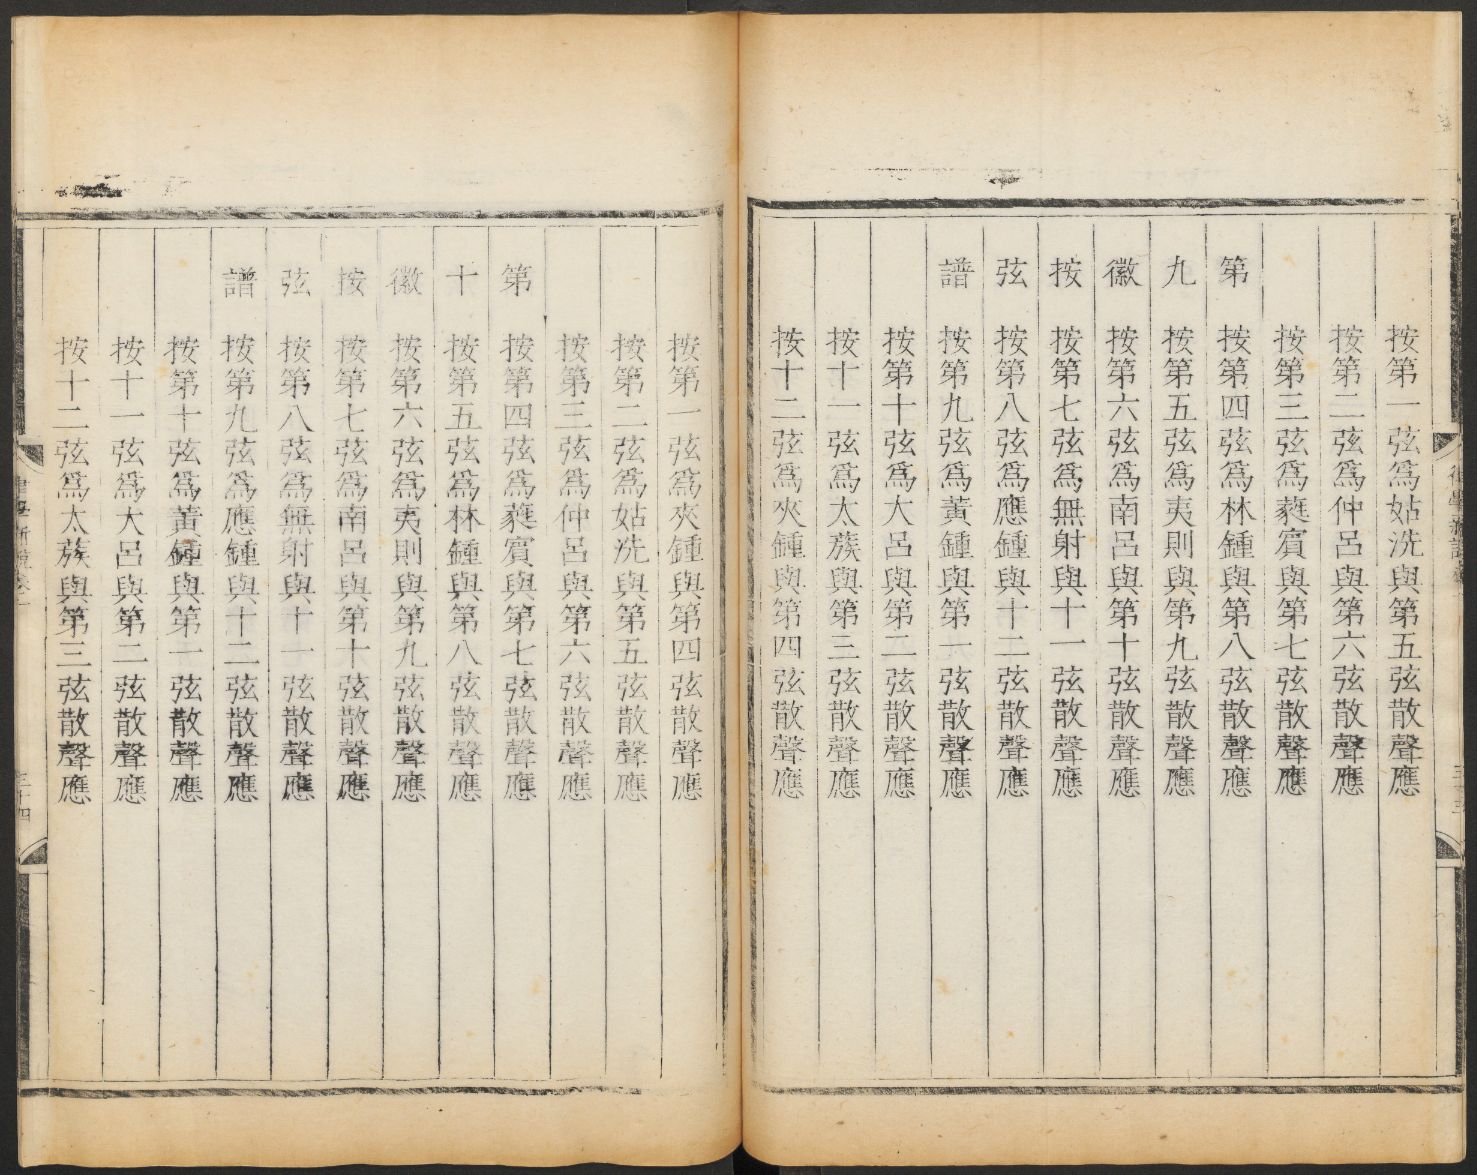 第九徽按弦譜
按第一弦爲姑洗與第五弦散聲應
按第二弦爲仲呂與第六弦散聲應
按第三弦爲蕤賓與第七弦散聲應
按第四弦爲林鍾與第八弦散聲應
按第五弦爲夷則與第九弦散聲應
按第六弦爲南呂與第十弦散聲應
按第七弦爲無射與十一弦散聲應
按第八弦爲應鍾與十二弦散聲應
按第九弦爲黃鍾與第一弦散聲應
按第十弦爲大呂與第二弦散聲應
按十一弦爲太蔟與第三弦散聲應
按十二弦爲夾鍾與第四弦散聲應
第十徽按弦譜
按第一弦爲夾鍾與第四弦散聲應
按第二弦爲姑洗與第五弦散聲應
按第三弦爲仲呂與第六弦散聲應
按第四弦爲蕤賓與第七弦散聲應
按第五弦爲林鍾與第八弦散聲應
按第六弦爲夷則與第九弦散聲應
按第七弦爲南呂與第十弦散聲應
按第八弦爲無射與十一弦散聲應
按第九弦爲應鍾與十二弦散聲應
按第十弦爲黃鍾與第一弦散聲應
按十一弦爲大呂與第二弦散聲應
按十二弦爲太蔟與第三弦散聲應
律學新說卷一
三十四